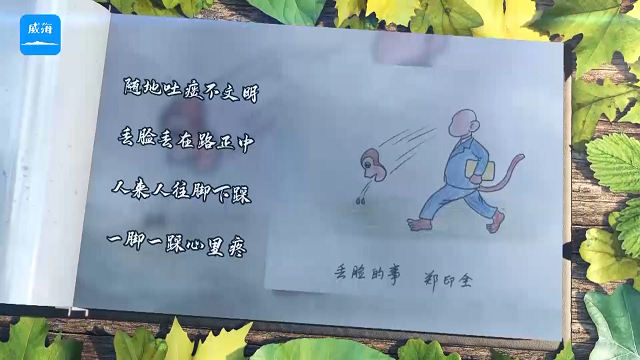 威海
随地吐痰不文明
丢脸丢在路正中
人来人往脚下踩
一脚一踩心里疼
丢脸的事 郑印全